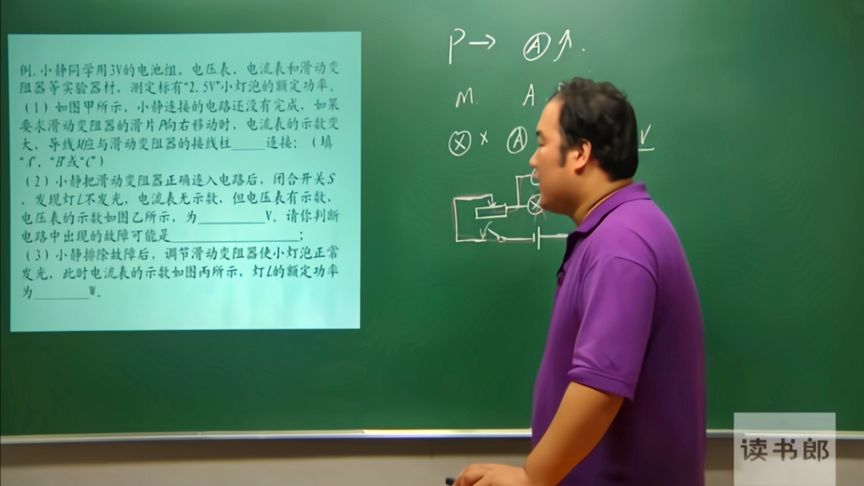 例.小静同学用3V的电池组、电压表、电流表和滑动变
阻器等实验器材,测定标有“2.5V”小灯泡的额定功率.
(1)如图甲所示,小静连接的电路还没有完成,如果
要求滑动变阻器的滑片P向右移动时,电流表的示数变
大,导线M应与滑动变阻器的接线柱____连接;(填
“A”、“B”或“C”)
(2)小静把滑动变阻器正确连入电路后,闭合开关S
,发现灯L不发光,电流表无示数,但电压表有示数,
电压表的示数如图乙所示,为________V.请你判断
电路中出现的故障可能是________________;
(3)小静排除故障后,调节滑动变阻器使小灯泡正常
发光,此时电流表的示数如图丙所示,灯L的额定功率
为_______W.
P→ Ⓐ↗.
M. A
⊗ × Ⓐ V
读书郎